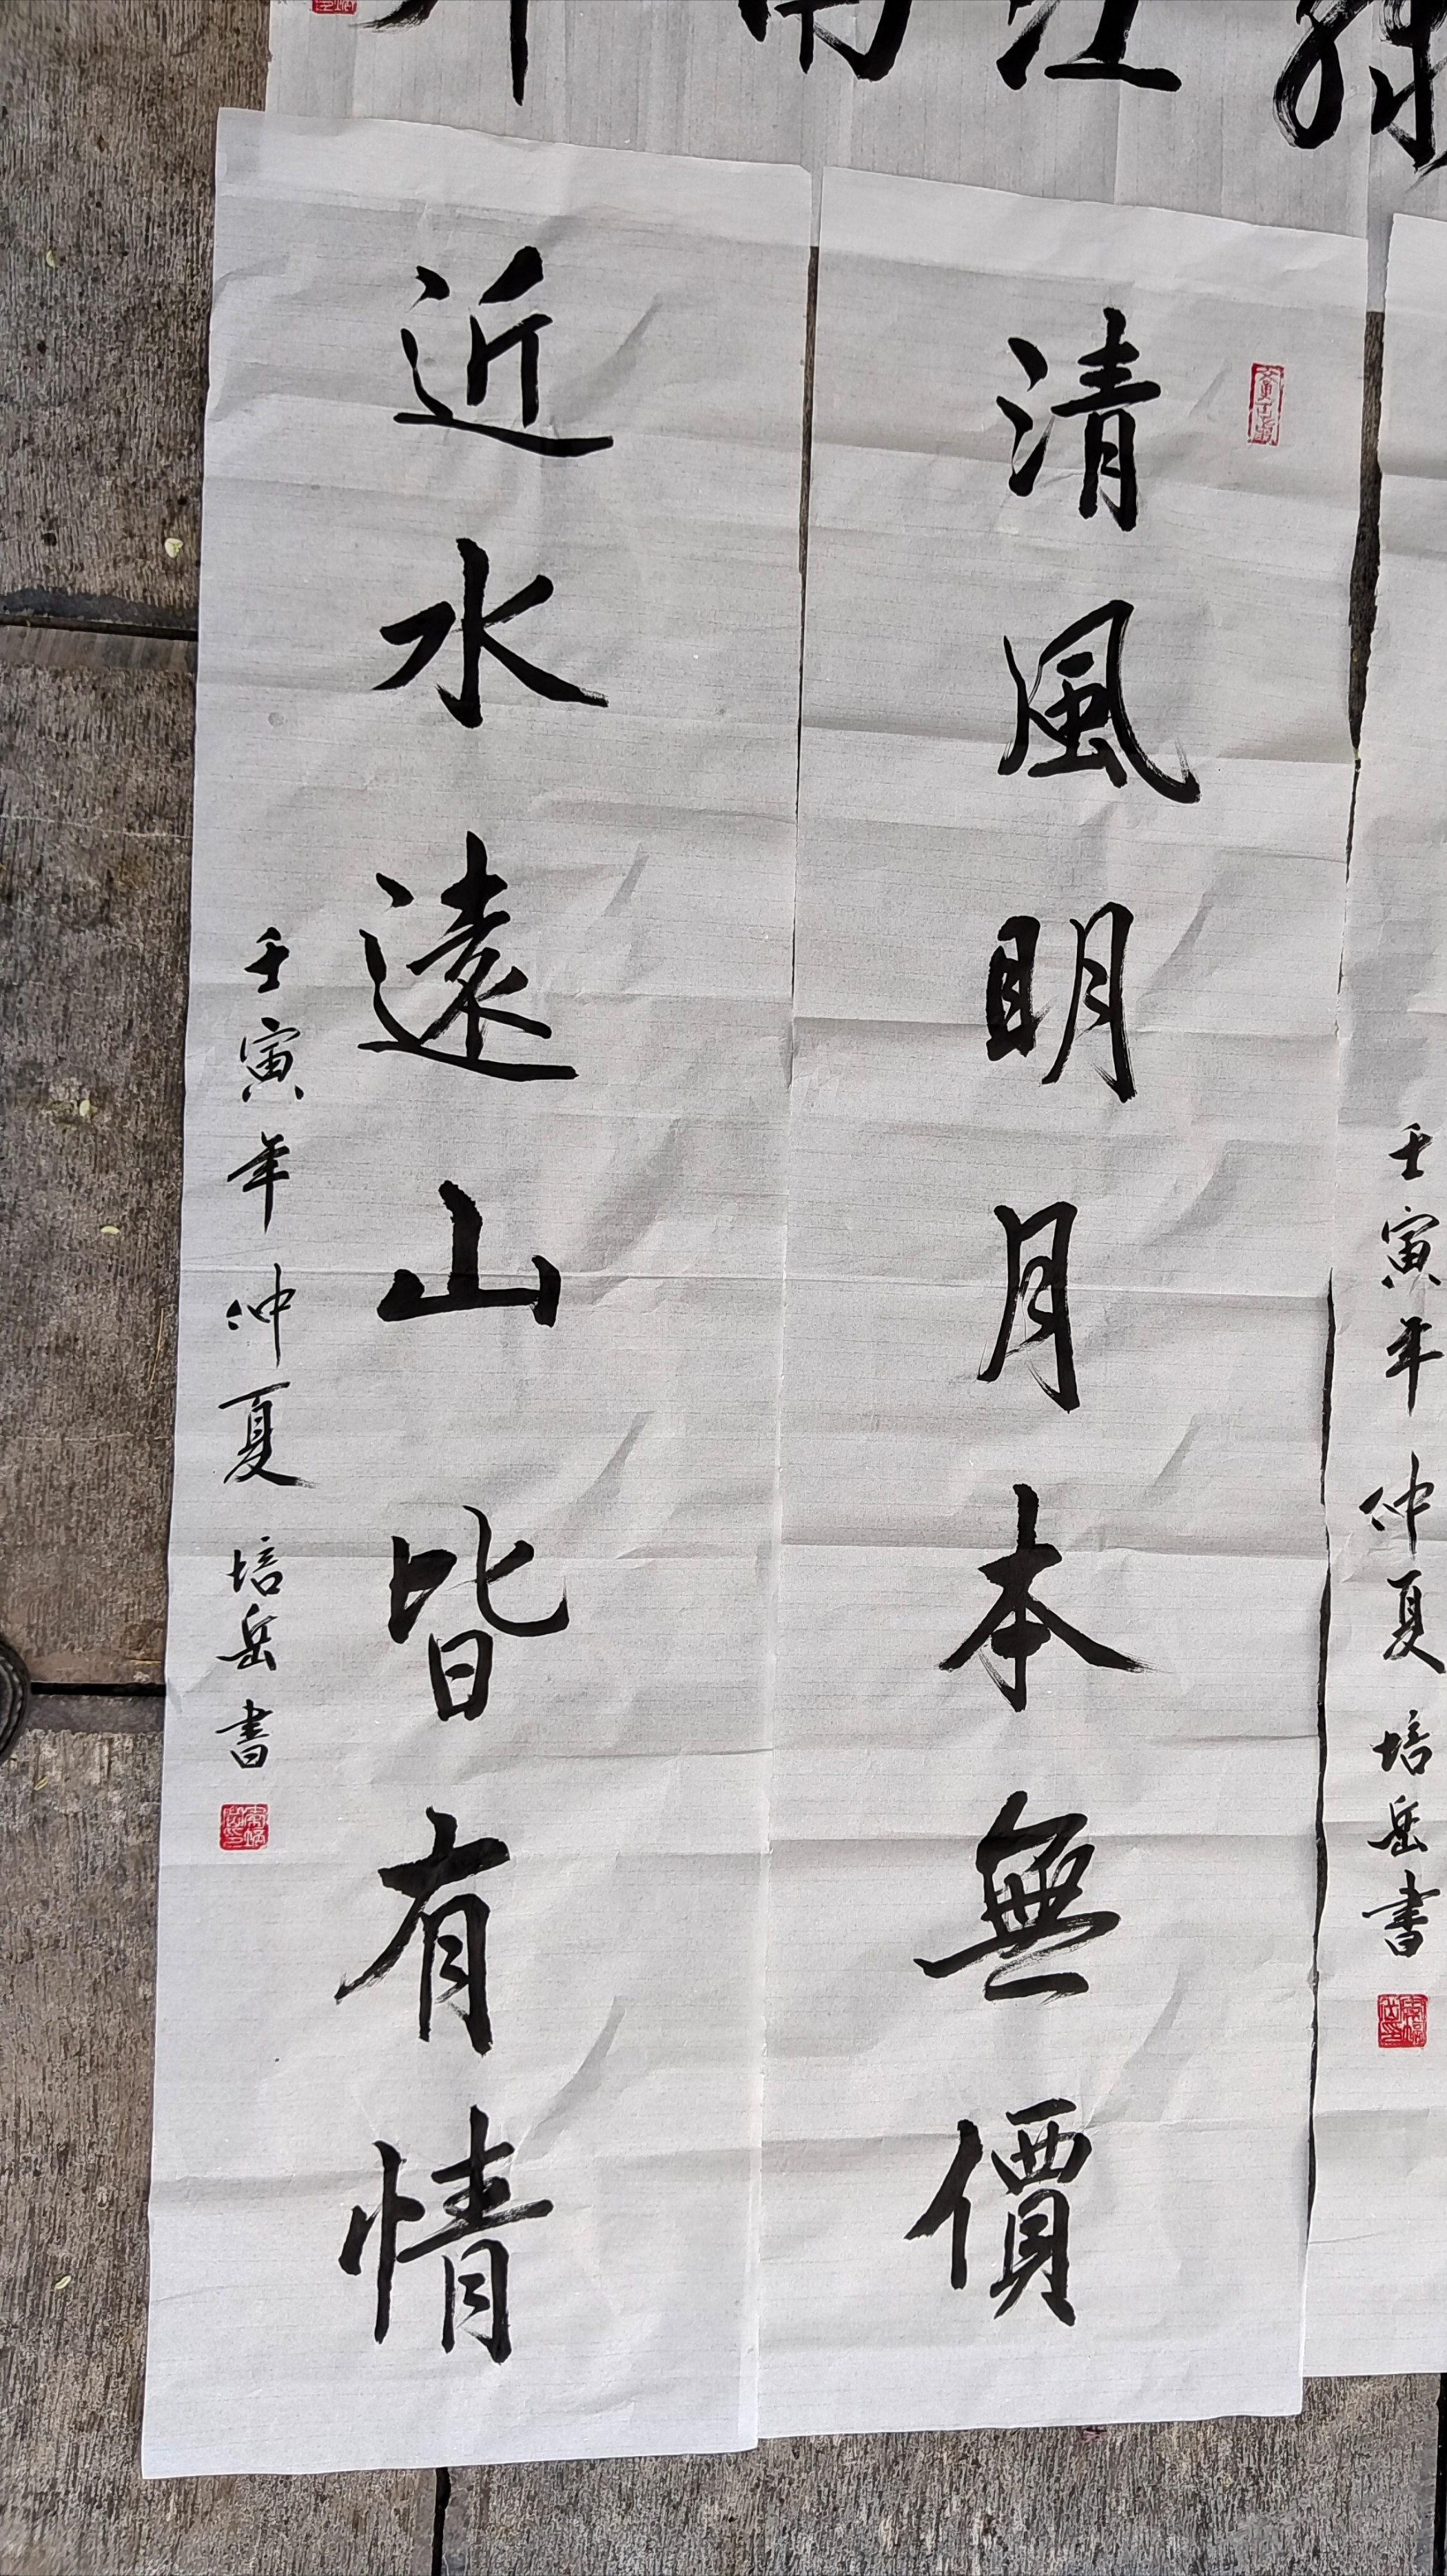 江南
清風明月本無價
近水遠山皆有情
壬寅年仲夏 培岳書
壬寅年仲夏 培岳書